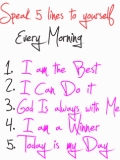 Speak 5 lines to yourself
Every Morning
1. I am the Best
2. I Can Do it
3. God Is always with Me
4. I am a Winner
5. Today is my Day